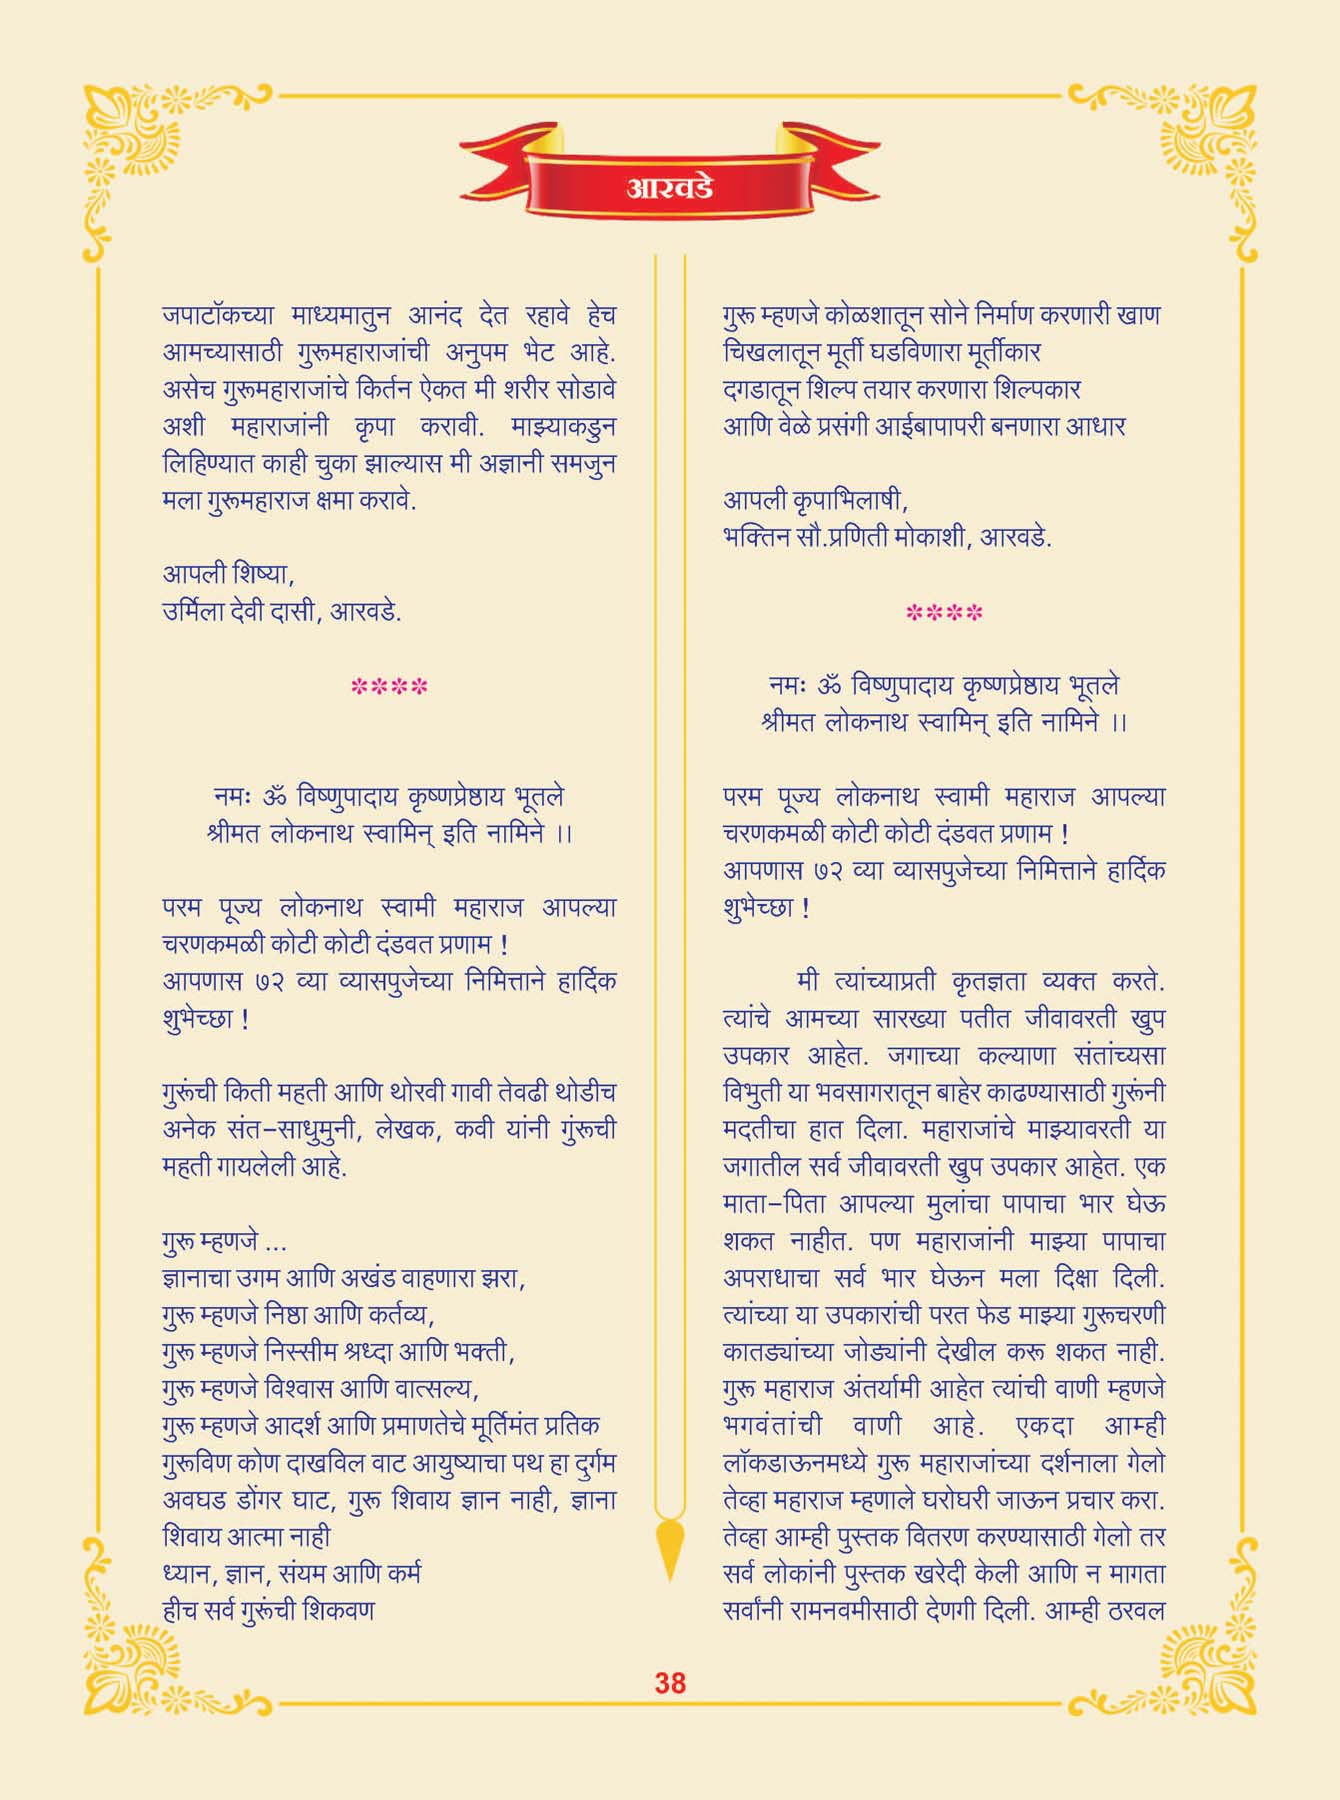 आरवडे
जपाटॉकच्या माध्यमातुन आनंद देत रहावे हेच
आमच्यासाठी गुरूमहाराजांची अनुपम भेट आहे.
असेच गुरूमहाराजांचे किर्तन ऐकत मी शरीर सोडावे
अशी महाराजांनी कृपा करावी. माझ्याकडुन
लिहिण्यात काही चुका झाल्यास मी अज्ञानी समजुन
मला गुरूमहाराज क्षमा करावे.
आपली शिष्या,
उर्मिला देवी दासी, आरवडे.
****
नमः ॐ विष्णुपादाय कृष्णप्रेष्ठाय भूतले
श्रीमत लोकनाथ स्वामिन् इति नामिने ।।
परम पूज्य लोकनाथ स्वामी महाराज आपल्या
चरणकमळी कोटी कोटी दंडवत प्रणाम !
आपणास ७२ व्या व्यासपुजेच्या निमित्ताने हार्दिक
शुभेच्छा !
गुरूंची किती महती आणि थोरवी गावी तेवढी थोडीच
अनेक संत-साधुमुनी, लेखक, कवी यांनी गुंरूची
महती गायलेली आहे.
गुरू म्हणजे ...
ज्ञानाचा उगम आणि अखंड वाहणारा झरा,
गुरू म्हणजे निष्ठा आणि कर्तव्य,
गुरू म्हणजे निस्सीम श्रध्दा आणि भक्ती,
गुरू म्हणजे विश्वास आणि वात्सल्य,
गुरू म्हणजे आदर्श आणि प्रमाणतेचे मूर्तिमंत प्रतिक
गुरूविण कोण दाखविल वाट आयुष्याचा पथ हा दुर्गम
अवघड डोंगर घाट, गुरू शिवाय ज्ञान नाही, ज्ञाना
शिवाय आत्मा नाही
ध्यान, ज्ञान, संयम आणि कर्म
हीच सर्व गुरूंची शिकवण
गुरू म्हणजे कोळशातून सोने निर्माण करणारी खाण
चिखलातून मूर्ती घडविणारा मूर्तीकार
दगडातून शिल्प तयार करणारा शिल्पकार
आणि वेळे प्रसंगी आईबापापरी बनणारा आधार
आपली कृपाभिलाषी,
भक्तिन सौ.प्रणिती मोकाशी, आरवडे.
****
नमः ॐ विष्णुपादाय कृष्णप्रेष्ठाय भूतले
श्रीमत लोकनाथ स्वामिन् इति नामिने ।।
परम पूज्य लोकनाथ स्वामी महाराज आपल्या
चरणकमळी कोटी कोटी दंडवत प्रणाम !
आपणास ७२ व्या व्यासपुजेच्या निमित्ताने हार्दिक
शुभेच्छा !
मी त्यांच्याप्रती कृतज्ञता व्यक्त करते.
त्यांचे आमच्या सारख्या पतीत जीवावरती खुप
उपकार आहेत. जगाच्या कल्याणा संतांच्यसा
विभुती या भवसागरातून बाहेर काढण्यासाठी गुरूंनी
मदतीचा हात दिला. महाराजांचे माझ्यावरती या
जगातील सर्व जीवावरती खुप उपकार आहेत. एक
माता-पिता आपल्या मुलांचा पापाचा भार घेऊ
शकत नाहीत. पण महाराजांनी माझ्या पापाचा
अपराधाचा सर्व भार घेऊन मला दिक्षा दिली.
त्यांच्या या उपकारांची परत फेड माझ्या गुरूचरणी
कातड्यांच्या जोड्यांनी देखील करू शकत नाही.
गुरू महाराज अंतर्यामी आहेत त्यांची वाणी म्हणजे
भगवंतांची वाणी आहे. एकदा आम्ही
लॉकडाऊनमध्ये गुरू महाराजांच्या दर्शनाला गेलो
तेव्हा महाराज म्हणाले घरोघरी जाऊन प्रचार करा.
तेव्हा आम्ही पुस्तक वितरण करण्यासाठी गेलो तर
सर्व लोकांनी पुस्तक खरेदी केली आणि न मागता
सर्वांनी रामनवमीसाठी देणगी दिली. आम्ही ठरवल
38